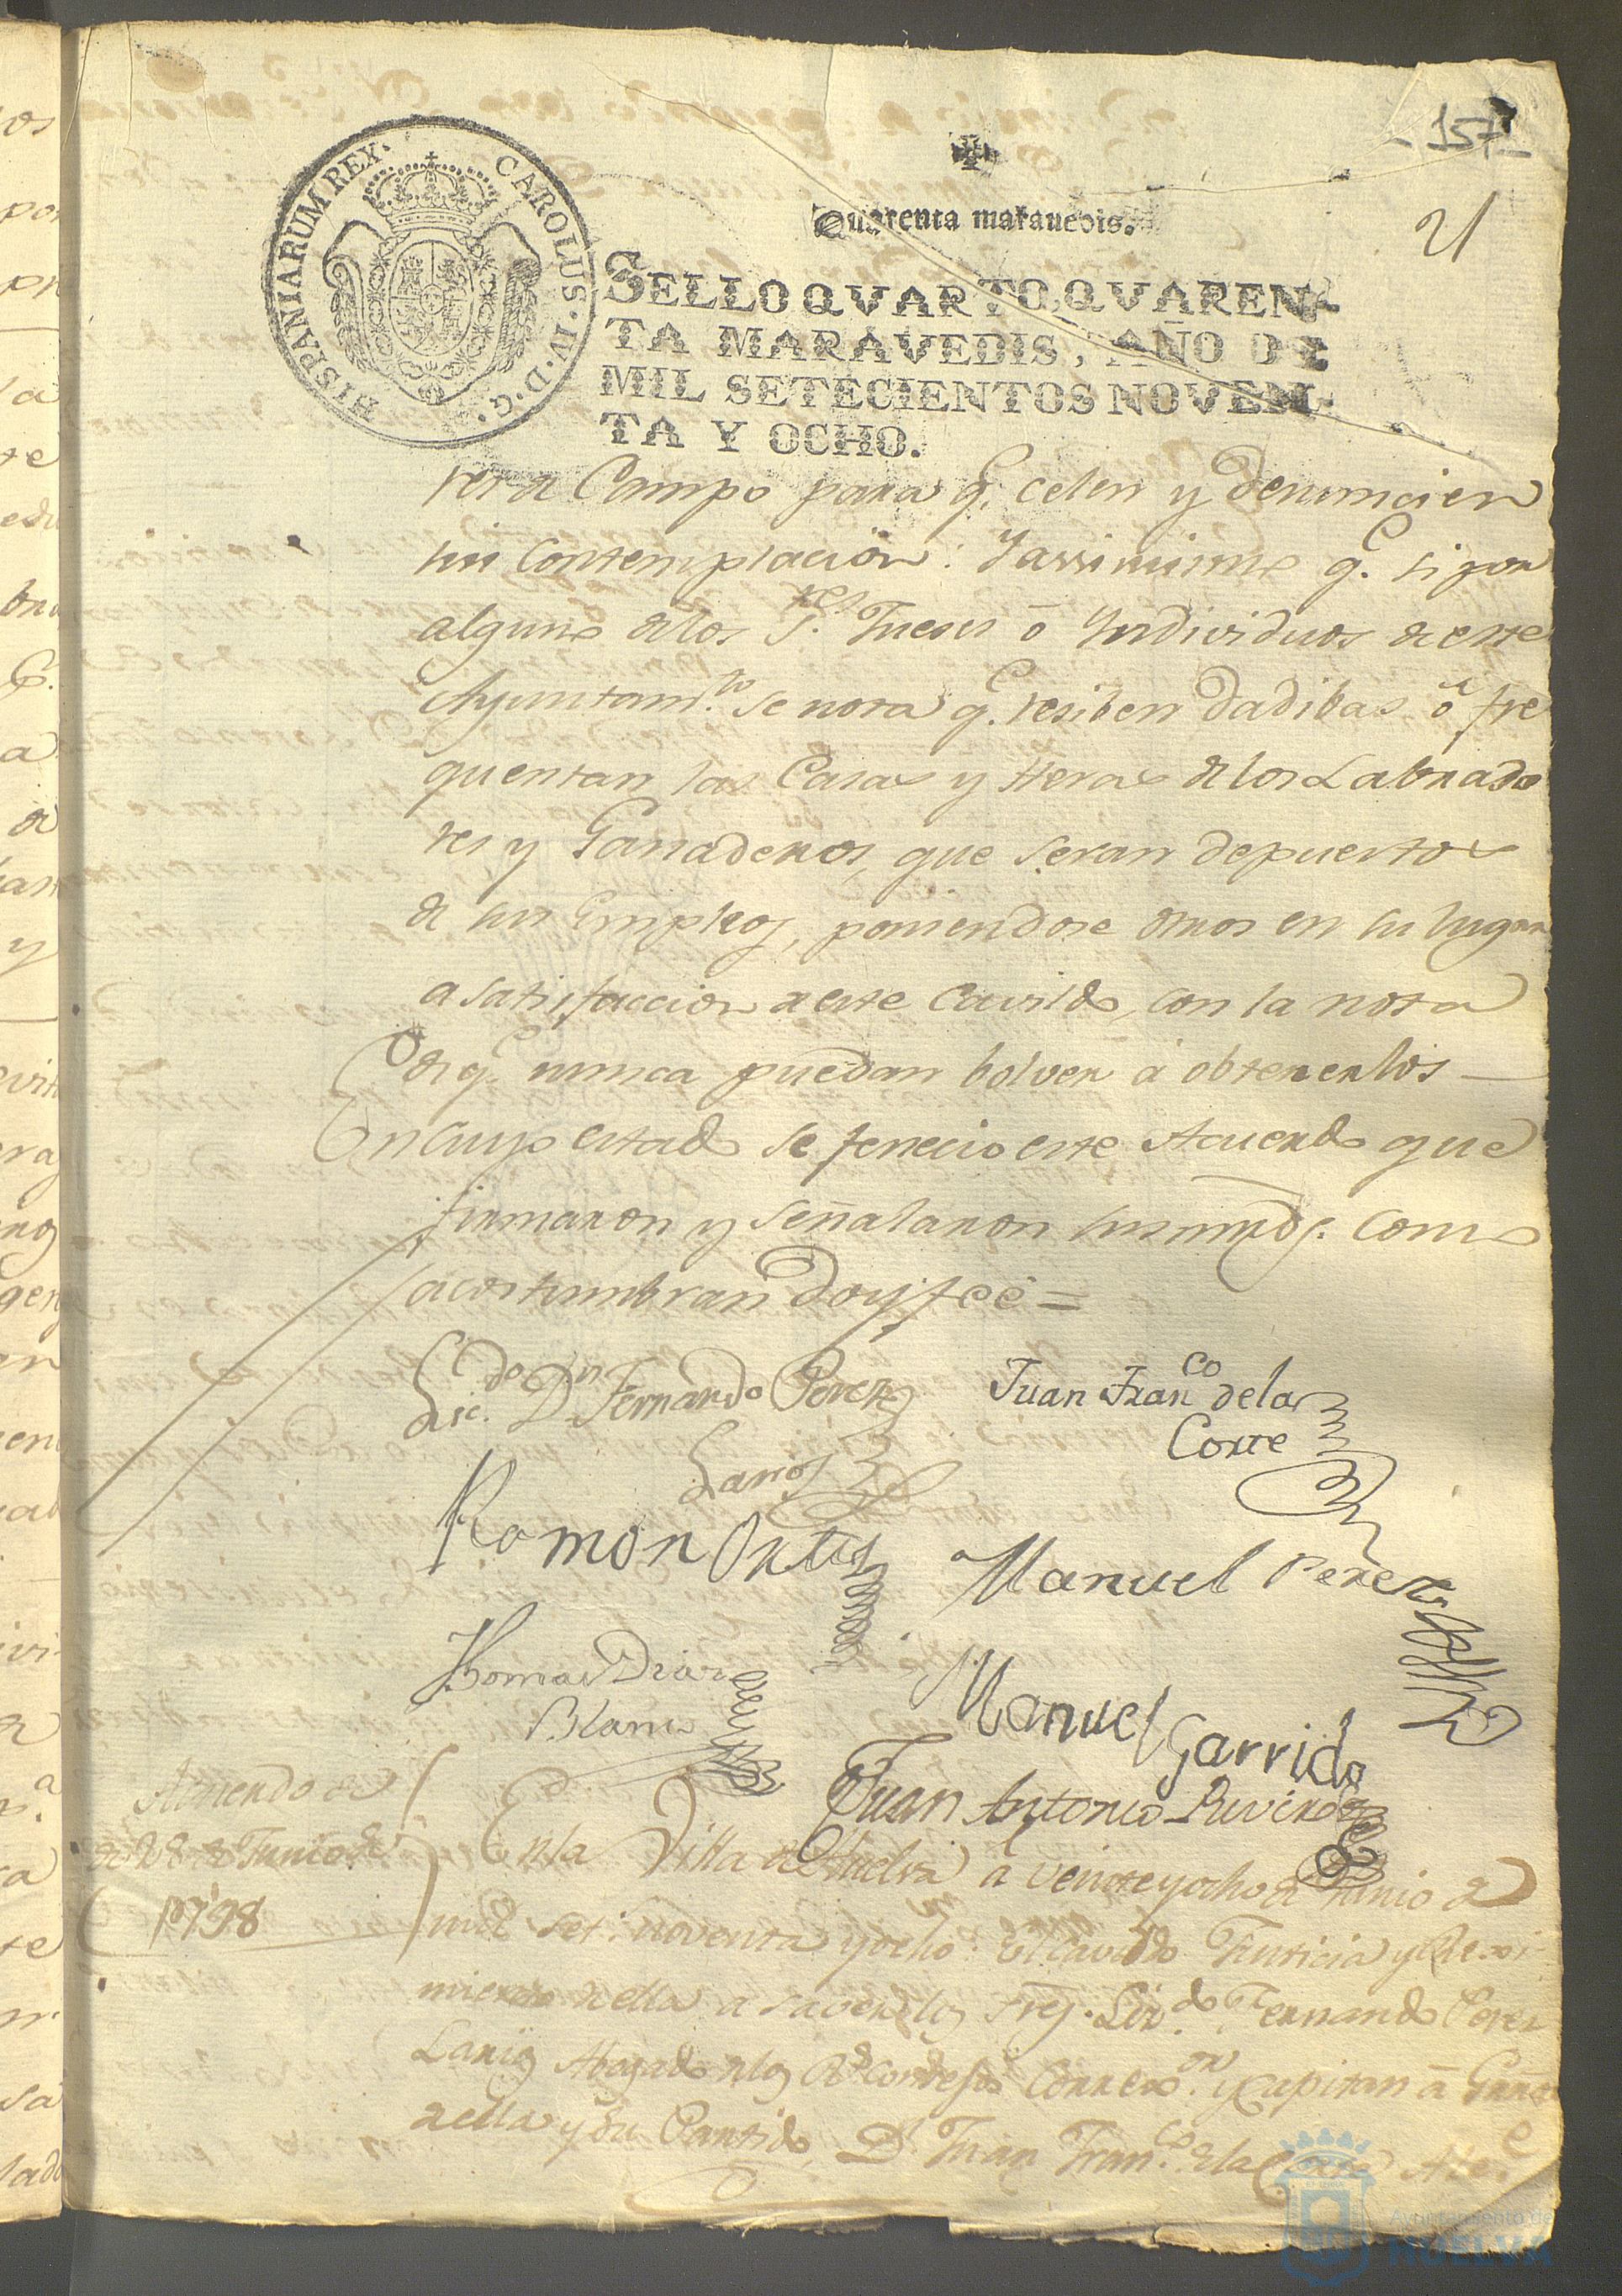 157
21
Quarenta marauedis.
HISPANIARUM REX. CAROLUS. IV. D. G.
SELLO QVARTO, QVAREN-
TA MARAVEDIS, AÑO DE
MIL SETECIENTOS NOVEN-
TA Y OCHO.
res a Campo para q.e celen y denuncien
sin contemplacion: Y assimismo q.e si por
alguno de los S.res Jueses ó Yndividuos de este
Ayuntam.to se nota q.e resiben dadibas ó fre
quentan las Casas y Heras de los Labrado
res y Ganaderos, que seran depuestos
de sus Empleos, poniendose otros en su lugar
a satisfaccion de este Cavildo, con la nota
de q.e nunca puedan bolver á obtenerlos
En cuyo estado se fenecio este Acuerdo que
firmaron y señalaron sus mrds. como
acostumbran doy fee =
Lic.do D.n Fernando Perez
Larios
Juan Fran.co de la
Corte
Ramon Ortis
Manuel Perez
Thomas Diaz
Blanco
Manuel Garrido
Juan Antonio Rivero
Acuerdo de
de 28 de Junio de
1798
En la Villa de Huelva á veinte y ocho de Junio de
mil set.s noventa y ocho: El Cavildo Justicia y Rexi
miento de ella a saver los Sres. Liz.do Fernando Perez
Larios Abogado de los R.s Consejos Correx.or y Capitan á Grra
de ella y su Partido, D.n Juan Fran.co de la Corte Alc.e
Ayuntamiento de
HUELVA